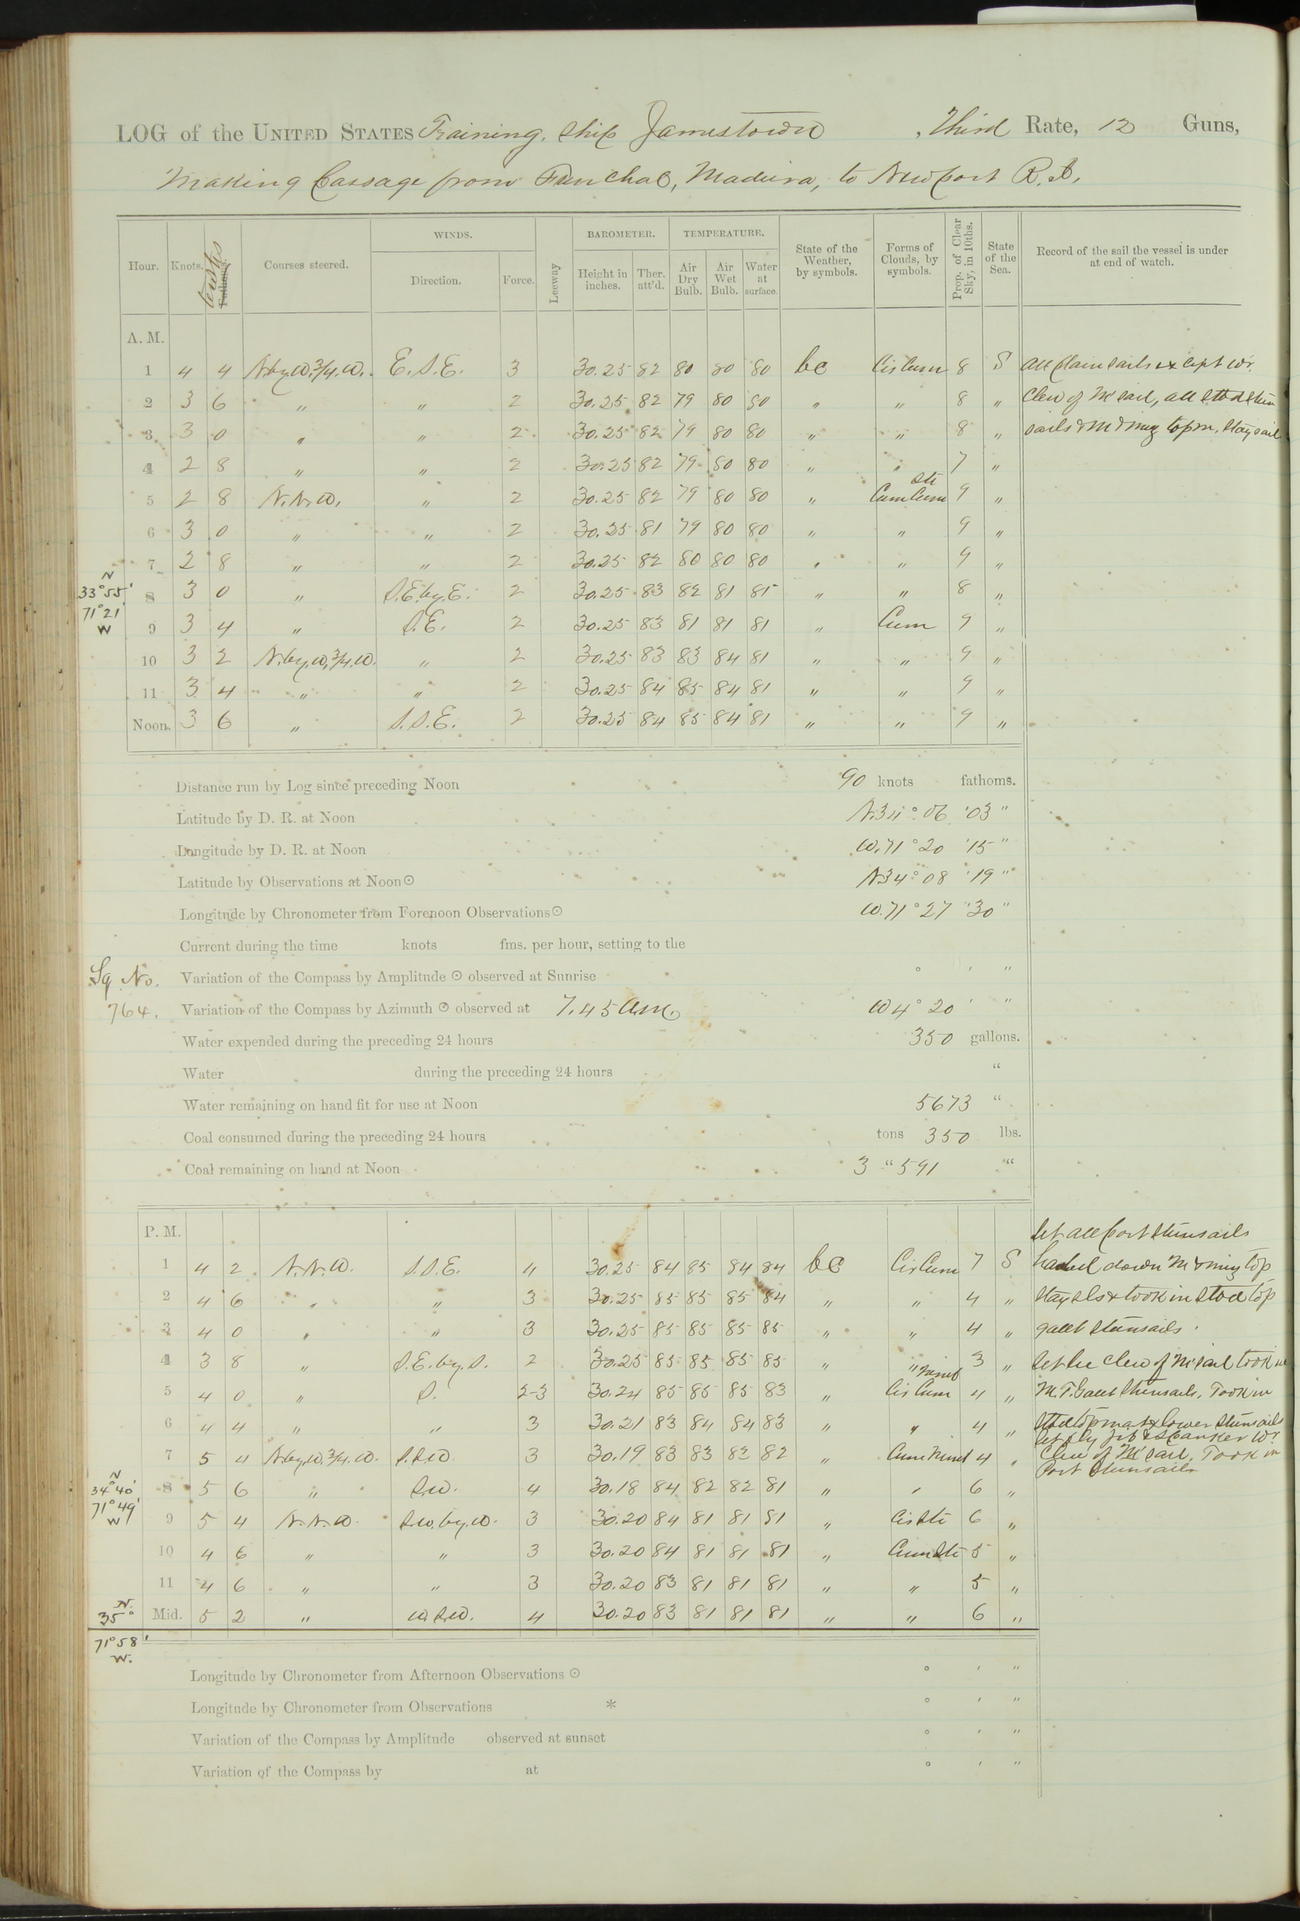 LOG of the UNITED STATES Training Ship Jamestown, Third Rate, 12 Guns,
Making Passage from Funchal, Madeira, to Newport R.I.
Hour. Knots. Tenths Fathoms. Courses steered. WINDS. Direction. Force. Leeway BAROMETER. Height in inches. Ther. att'd. TEMPERATURE. Air Dry Bulb. Air Wet Bulb. Water at surface. State of the Weather, by symbols. Forms of Clouds, by symbols. Prop. of Clear Sky, in 10ths. State of the Sea. Record of the sail the vessel is under at end of watch.
A. M.
1 4 4 N.by W. 3/4 W. E.S.E. 3 30.25 82 80 80 80 bc Cis Cum 8 S All plain sails except wr.
2 3 6 " " 2 30.25 82 79 80 80 " " 8 " Clew of M sail, all stbd stun
3 3 0 " " 2 30.25 82 79 80 80 " " 8 " sails & M & miz topm. staysail
4 2 8 " " 2 30.25 82 79 80 80 " " 7 "
5 2 8 N.N.W. " 2 30.25 82 79 80 80 " Cum Cum Sti 9 "
6 3 0 " " 2 30.25 81 79 80 80 " " 9 "
7 2 8 " " 2 30.25 82 80 80 80 " " 9 "
N 33°55' 71°21' W
8 3 0 " S.E. by E. 2 30.25 83 82 81 81 " " 8 "
9 3 4 " S.E. 2 30.25 83 81 81 81 " Cum 9 "
10 3 2 N.by W. 3/4 W. " 2 30.25 83 83 84 81 " " 9 "
11 3 4 " " 2 30.25 84 85 84 81 " " 9 "
Noon. 3 6 " S.S.E. 2 30.25 84 85 84 81 " " 9 "
Distance run by Log since preceding Noon 90 knots fathoms.
Latitude by D. R. at Noon N.34° 06' 03"
Longitude by D. R. at Noon W.71° 20' 15"
Latitude by Observations at Noon ☉ N34° 08' 19"
Longitude by Chronometer from Forenoon Observations ☉ W.71° 27' 30"
Current during the time knots fms. per hour, setting to the
Sq. No. 764.
Variation of the Compass by Amplitude ☉ observed at Sunrise ° ' "
Variation of the Compass by Azimuth ☉ observed at 7.45 a.m. W 4° 20' "
Water expended during the preceding 24 hours 350 gallons.
Water during the preceding 24 hours "
Water remaining on hand fit for use at Noon 5673 "
Coal consumed during the preceding 24 hours tons 350 lbs.
Coal remaining on hand at Noon 3 " 591 "
P. M.
Set all port stunsails
1 4 2 N.N.W. S.S.E. " 30.25 84 85 84 84 bc Cis Cum 7 S hauled down M & miz top
2 4 6 " " 3 30.25 85 85 85 84 " " 4 " staysls & took in stbd top
3 4 0 " " 3 30.25 85 85 85 85 " " 4 " gallt stunsails.
4 3 8 " S.E. by S. 2 30.25 85 85 85 85 " " 3 " Set lee clew of M sail took in
5 4 0 " S. 2-3 30.24 85 85 85 83 " Cis Cum Nimb 4 " M.T. Gallt stunsails. Took in
6 4 4 " " 3 30.21 83 84 84 83 " " 4 " stbd topmast & lower stunsails
Set fly jib & spanker wr
7 5 4 N by W. 3/4 W. S.S.W. 3 30.19 83 83 83 82 " Cum Nimb 4 " Clew of M sail, Took in
Port stunsails
N 34°40' 71°49' W
8 5 6 " S.W. 4 30.18 84 82 82 81 " " 6 "
9 5 4 N.N.W. S.W. by W. 3 30.20 84 81 81 81 " Cis Sti 6 "
10 4 6 " " 3 30.20 84 81 81 81 " Cum Sti 5 "
11 4 6 " " 3 30.20 83 81 81 81 " " 5 "
N. 35° 71°58' W.
Mid. 5 2 " W.S.W. 4 30.20 83 81 81 81 " " 6 "
Longitude by Chronometer from Afternoon Observations ☉ ° ' "
Longitude by Chronometer from Observations * ° ' "
Variation of the Compass by Amplitude observed at sunset ° ' "
Variation of the Compass by at ° ' "